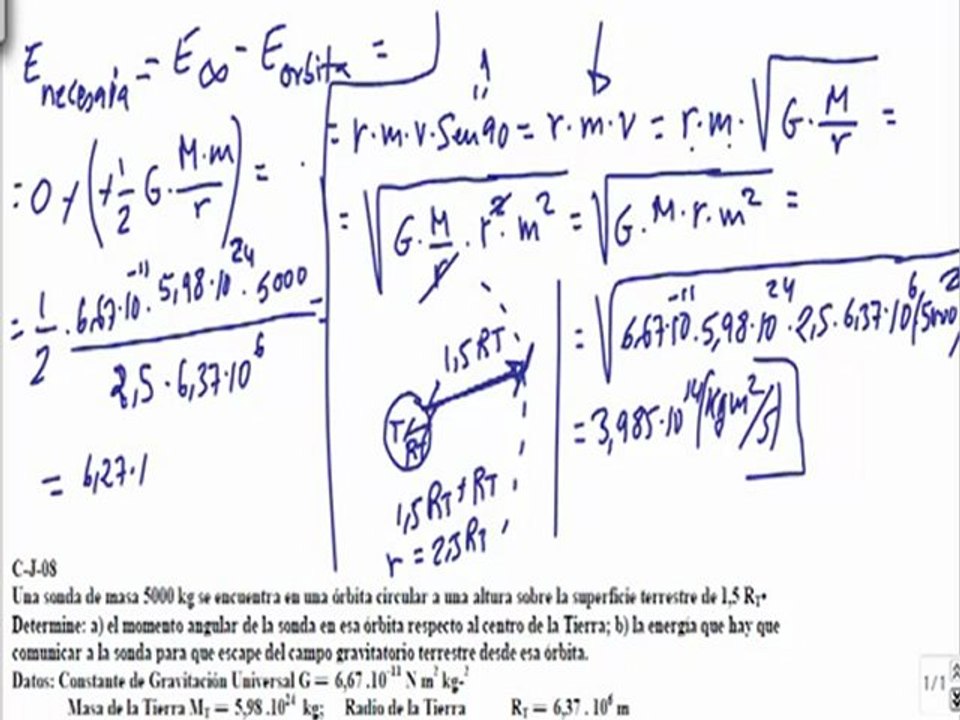 E necesaria = E∞ - E orbita =
= 0 + (+ 1/2 G · M·m/r) =
= 1/2 · 6,67·10^-11 · 5,98·10^24 · 5000 / 2,5 · 6,37·10^6 =
= 6,27·1
1
b
= r·m·v·Sen90 = r·m·v = r·m·√(G·M/r) =
= √(G·M/r · r^2·m^2) = √(G·M·r·m^2) =
1,5RT
T
RT
1,5RT+RT
r = 2,5RT
= √(6,67·10^-11 · 5,98·10^24 · 2,5 · 6,37·10^6 (5000)^2
= 3,985·10^14 (kg m^2/s)
C-J-08
Una sonda de masa 5000 kg se encuentra en una órbita circular a una altura sobre la superficie terrestre de 1,5 RT.
Determine: a) el momento angular de la sonda en esa órbita respecto al centro de la Tierra; b) la energía que hay que
comunicar a la sonda para que escape del campo gravitatorio terrestre desde esa órbita.
Datos: Constante de Gravitación Universal G = 6,67 .10^-11 N m^2 kg-^2
Masa de la Tierra MT = 5,98 .10^24 kg; Radio de la Tierra RT = 6,37 . 10^6 m
1/1